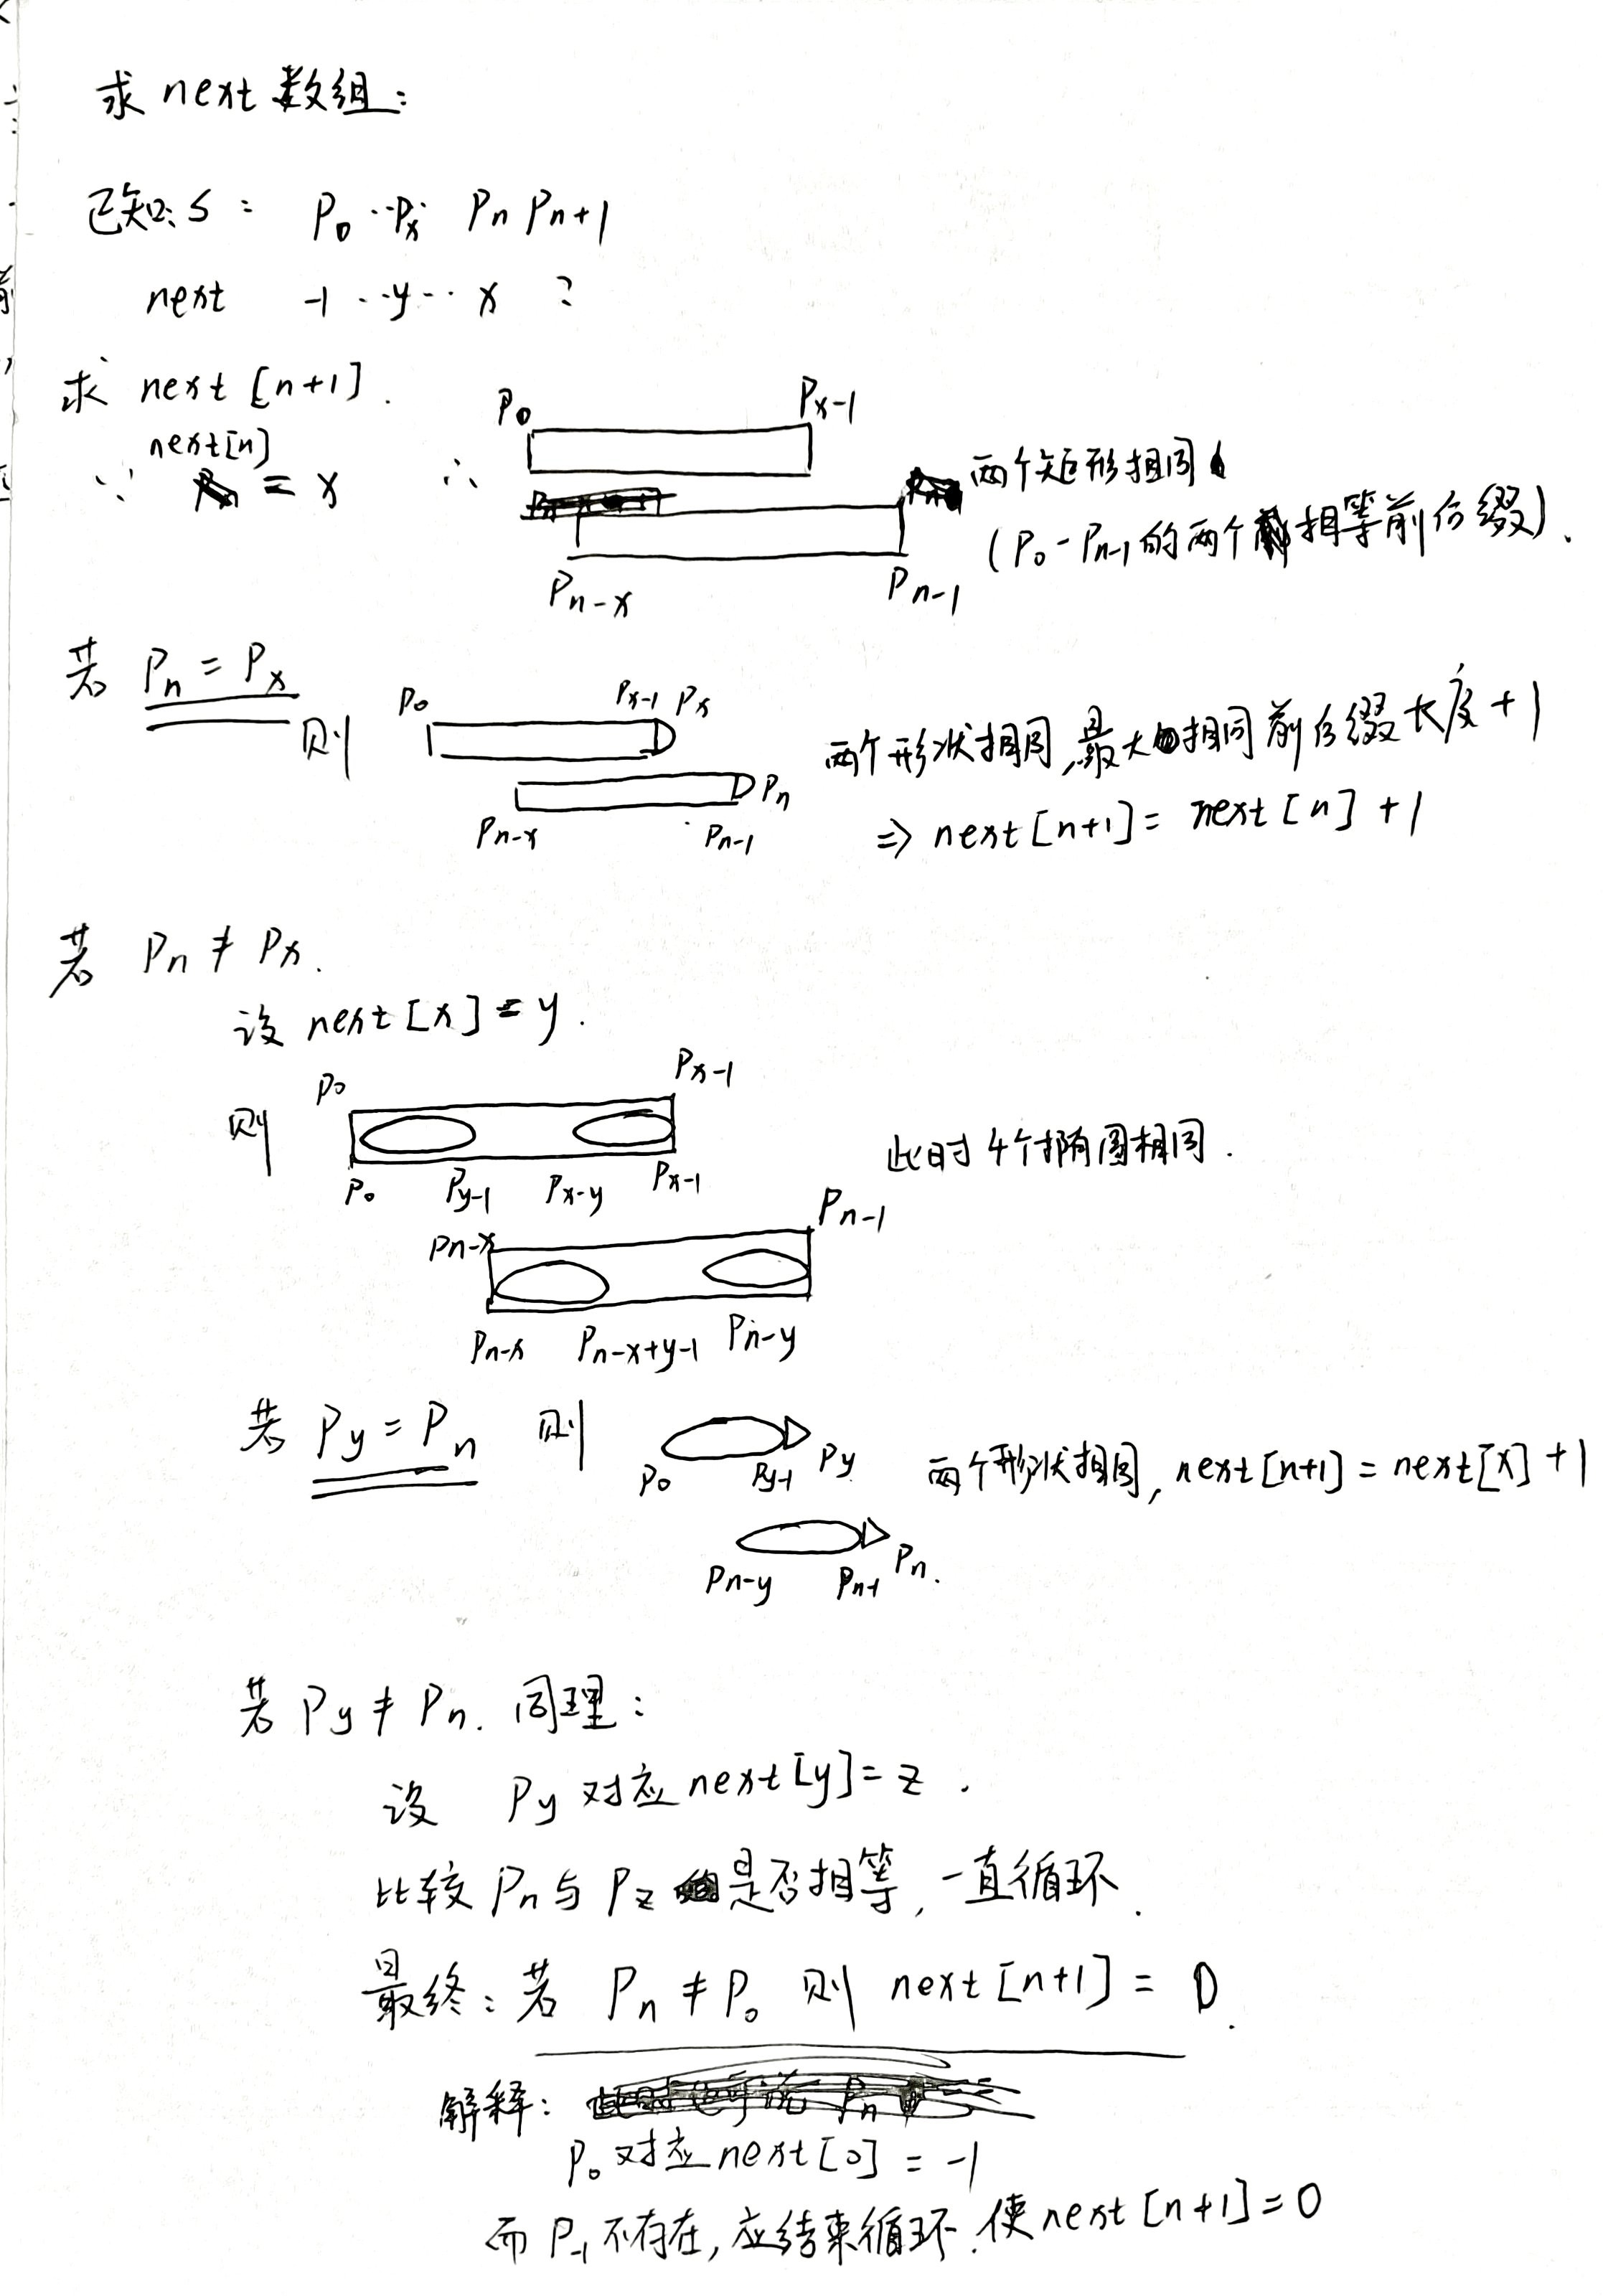 求 next 数组：
已知：S： P₀ ‥Pₓ Pn Pn+1
next -1 ‥y‥ x ？
求 next [n+1].
∵ next[n] = x ∴
P₀ Px-1
Pn-x Pn-1
两个矩形相同
(P₀-Pn-1的两个相等前后缀).
若 Pn = Px
则 P₀ Px-1 Px
Pn-x Pn-1 Pn
两个形状相同,最大相同前后缀长度+1
⇒ next[n+1] = next[n] +1
若 Pn ≠ Px.
设 next[x] = y.
则 P₀ Px-1
P₀ Py-1 Px-y Px-1
此时4个椭圆相同.
Pn-x Pn-1
Pn-x Pn-x+y-1 Pn-y
若 Py = Pn 则
P₀ Py-1 Py
Pn-y Pn-1 Pn.
两个形状相同, next[n+1] = next[x] +1
若 Py ≠ Pn. 同理：
设 Py 对应 next[y] = z .
比较 Pn 与 Pz 是否相等, 一直循环.
最终：若 Pn ≠ P₀ 则 next[n+1] = 0.
解释：
P₀ 对应 next[0] = -1
而 P-1 不存在, 应结束循环. 使 next[n+1]=0